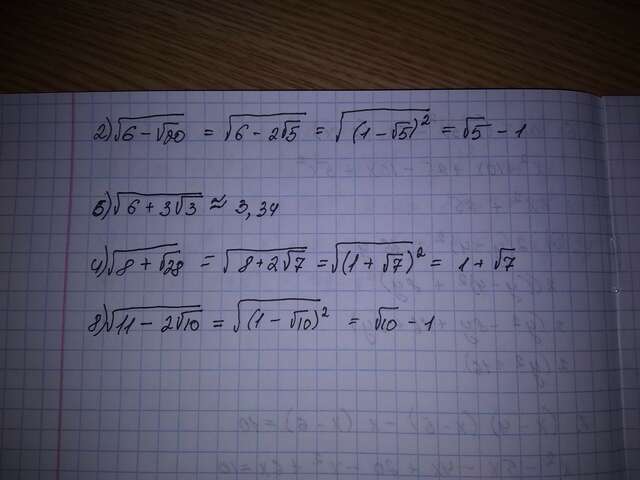 2) √(6 − √20) = √(6 − 2√5) = √((1 − √5)²) = √5 − 1
5) √(6 + 3√3) ≈ 3,34
4) √(8 + √28) = √(8 + 2√7) = √((1 + √7)²) = 1 + √7
8) √(11 − 2√10) = √((1 − √10)²) = √10 − 1